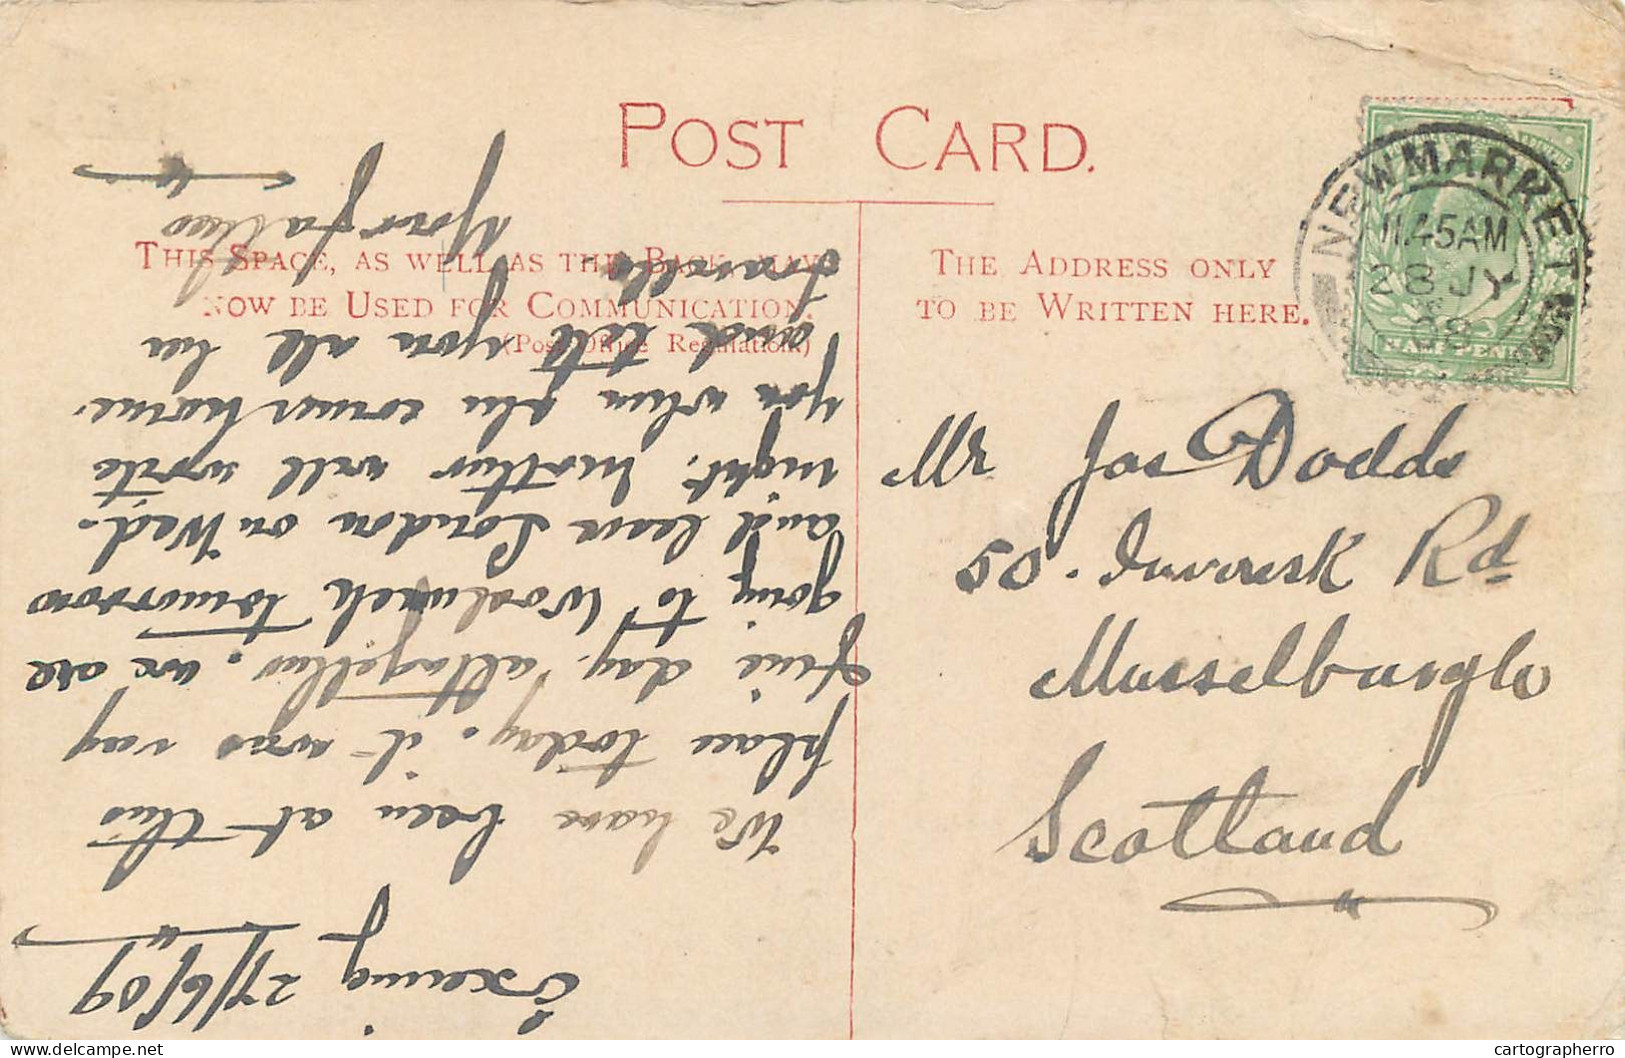 POST CARD.
THIS SPACE, AS WELL AS THE BACK, MAY
NOW BE USED FOR COMMUNICATION.
(Post Office Regulation.)
THE ADDRESS ONLY
TO BE WRITTEN HERE.
NEWMARKET
11.45AM
28 JY
09
HALFPENNY
Mr Jas Dodds
50. Inveresk Rd
Musselburgh
Scotland
Exning 27/6/09
We have been at this
place today. it was very
fine day altogether. we are
going to Woolwich tomorrow
and leave London on Wed.
night. Mother will write
you when she comes home.
and tell you all her
travells
Your father
cartographerro